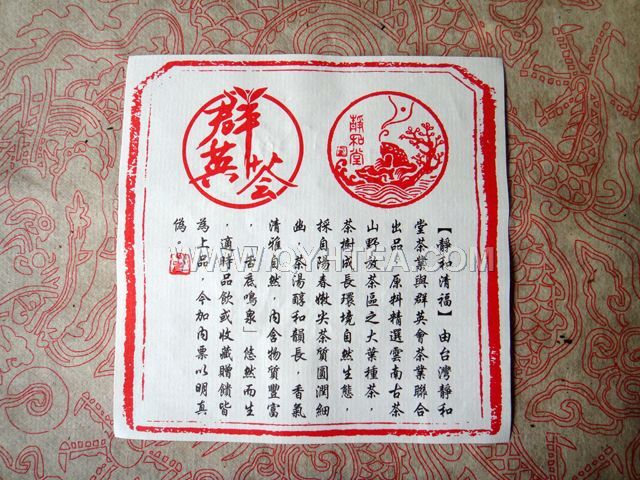 群英荟
靜和堂
【靜和清福】由台灣靜和
堂茶業與群英會茶業聯合
出品，原料精選雲南古茶
山野放茶區之大葉種茶，
茶樹成長環境自然生態，
採自陽春嫩尖茶質圓潤細
幽，茶湯醇和韻長，香氣
清雅自然，內含物質豐富
，「舌底鳴泉」悠然而生
，適時品飲或收藏贈饋皆
為上品，今加內票以明真
偽。
WWW.QYHTEA.COM